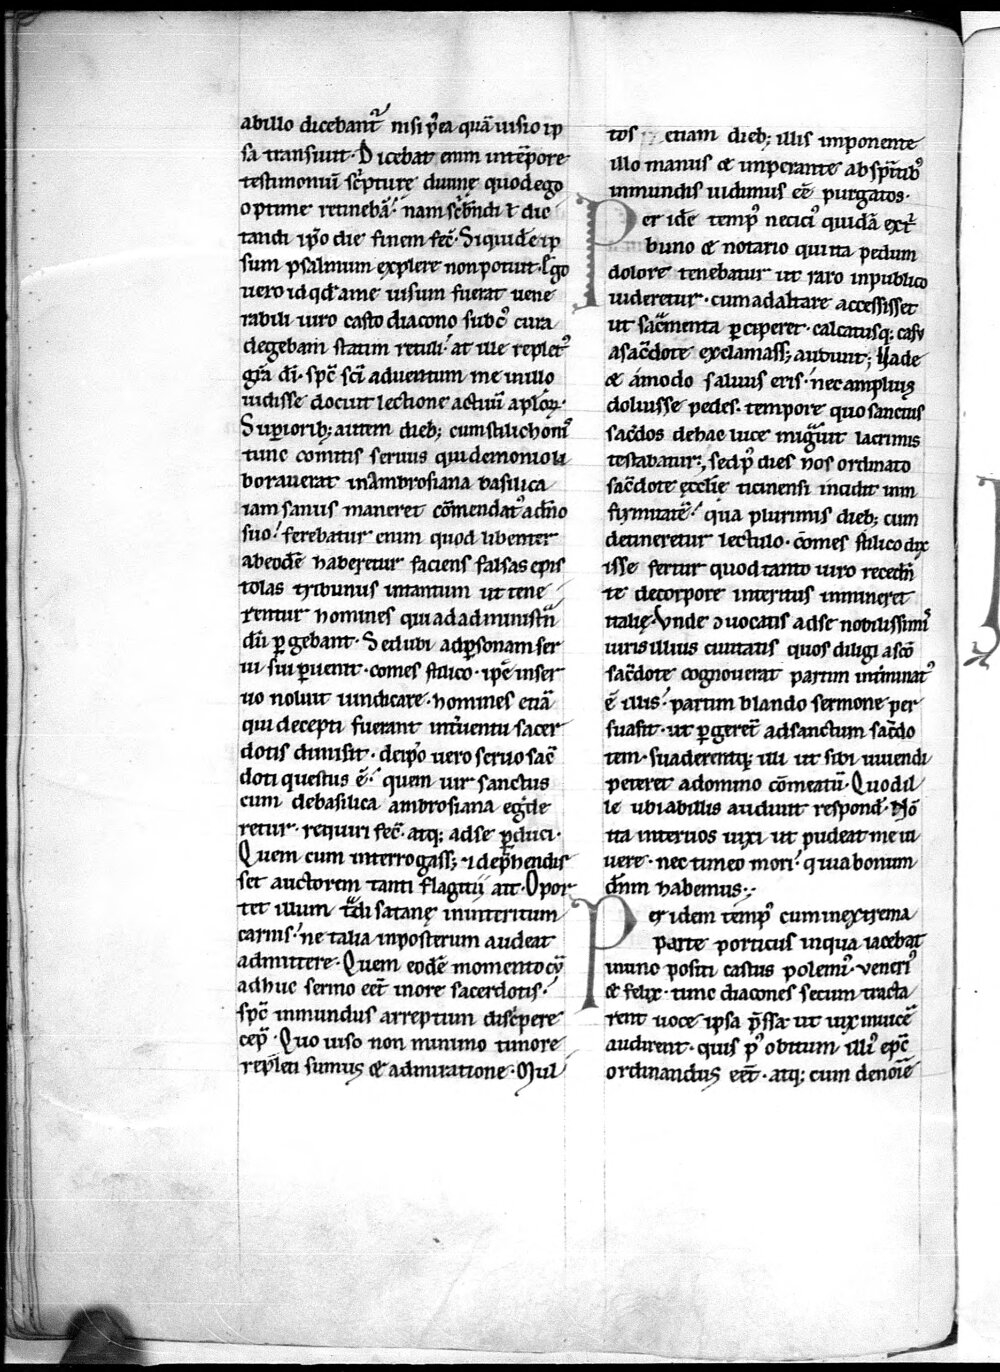 abillo dicebant᷑ nisi p̾ea quā uisio ip
sa transiuit. Dicebat enim intēpore
testimoniū sc̾pturę diuinę quod ego
optime retinebā. nam sc̾bendi ł dic
tandi ip̄o die finem fec̄. Siquidē ip
sum psalmum explere non potuit. Ego
uero id qd̄ a me uisum fuerat uene
rabili uiro casto diacono sub cui᾽ cura
degebam statim retuli. at ille replet᾽
gr̄a dī. sp̄c sc̄i aduentum me in illo
uidisse docuit lectione actuū aplōꝝ.
Superiorib; autem dieb; cum stiliconis
tunc comitis seruus qui demonio la
borauerat in ambrosiana basilica
iam sanus maneret cōmendat᾽ a dn̄o
suo. ferebatur enim quod libenter
ab eodē haberetur faciens falsas epis
tolas tribunus intantum ut tene
rentur homines qui ad administrā
dū ꝑgebant. Sed ubi ad ꝑsonam ser
ui sui ꝑuenit. comes stilico. ip̄e in ser
uo noluit uindicare. homines etiā
qui decepti fuerant int̾uentu sacer
dotis dimisit. de ip̄o uero seruo sac̄
doti questus ē. quem uir sanctus
cum de basilica ambrosiana egrede
retur. requiri fec̄. atq; ad se ꝑduci.
Quem cum interrogass; ⁊ dep̄hendis
set auctorem tanti flagitii ait. Opor
tet illum tradi satanę in interitum
carnis. ne talia in posterum audeat
admittere. Quem eodē momento cū
adhuc sermo eēt in ore sacerdotis.
sp̄c inmundus arreptum discerpere
cep̄. Quo uiso non minimo timore
repleti sumus & admiratione. Mul
tos etiam dieb; illis imponente
illo manus & imperante ab sp̄itib᾽
inmundis uidimus eē purgatos.
Per idē temp᾽ niceti᾽ quidā ext̾
buno & notario qui ita pedum
dolore tenebatur ut raro in publico
uideretur. cum ad altare accessisset
ut sac̾menta ꝑciperet. calcatusq; casu
a sac̄dote exclamass; audiuit; Uade
& amodo saluus eris. nec amplius
doluisse pedes. tempore quo sanctus
sac̄dos de hac luce migrauit lacrimis
testabatur; sed p᾽ dies nos ordinato
sac̄dote ęcclie ticinensi incidit in in
firmitatē. qua plurimis dieb; cum
detineretur lectulo. cōmes stilico dix
isse fertur quod tanto uiro receden
te de corpore interitus immineret
italię. Unde ↄuocatis ad se nobilissimis
uiris illius ciuitatis quos diligi a sc̄o
sac̄dote cognouerat partim interminat᾽
ē illis. partim blando sermone per
suasit. ut ꝑgerēt ad sanctum sac̄do
tem. suaderentq; illi ut sibi uiuendi
peteret a domino cōmeatū. Quod il
le ubi ab illis audiuit respond̄. Nō
ita inter uos uixi ut pudeat me ui
uere. nec timeo mori. quia bonum
dn̄m habemus;
Per idem temp᾽ cum in extrema
parte porticus in qua iacebat
in uno positi castus polemi᾽. ueneri᾽
& felix. tunc diacones secum tracta
rent uoce ipsa p̄ssa ut uix inuicē
audirent. quis p᾽ obitum illi᾽ ep̄c
ordinandus eēt. atq; cum de noīe